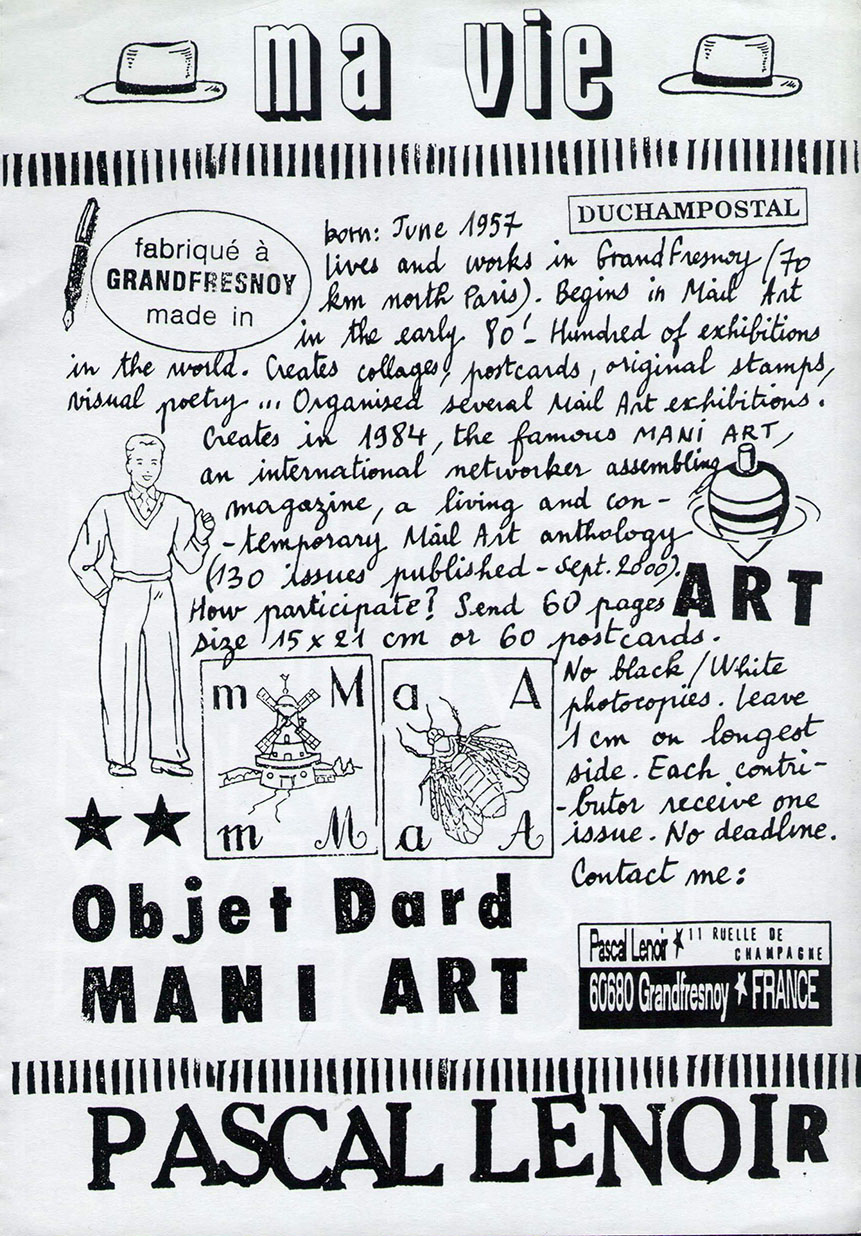 ma vie
DUCHAMPOSTAL
fabriqué à
GRANDFRESNOY
made in
born: June 1957
lives and works in GrandFresnoy (70
km north Paris). Begins in Mail Art
in the early 80'- Hundred of exhibitions
in the world. Creates collages, postcards, original stamps,
visual poetry ... Organised several Mail Art exhibitions.
Creates in 1984, the famous MANI ART,
an international networker assembling
magazine, a living and con-
-temporary Mail Art anthology
(130 issues published - Sept. 2000).
ART
How participate? Send 60 pages
size 15 x 21 cm or 60 postcards.
No black/White
photocopies. Leave
1 cm on longest
side. Each contri-
-butor receive one
issue. No deadline.
Contact me:
m M
m M
a A
a A
Objet Dard
MANI ART
Pascal Lenoir 11 RUELLE DE
CHAMPAGNE
60680 Grandfresnoy FRANCE
PASCAL LENOIR